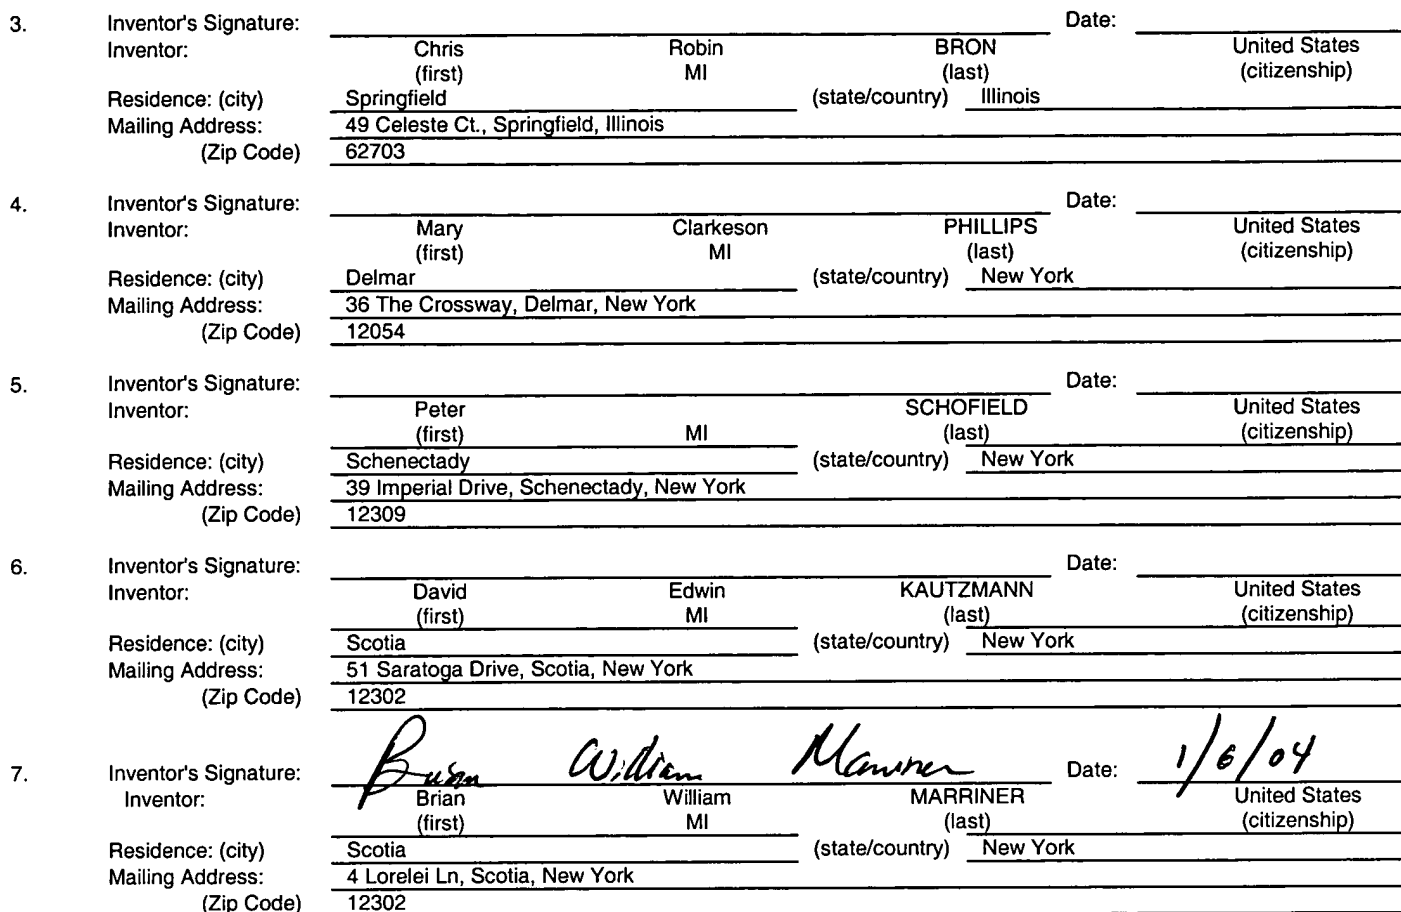 3. Inventor's Signature: Date:
Inventor: Chris Robin BRON United States
(first) MI (last) (citizenship)
Residence: (city) Springfield (state/country) Illinois
Mailing Address: 49 Celeste Ct., Springfield, Illinois
(Zip Code) 62703
4. Inventor's Signature: Date:
Inventor: Mary Clarkeson PHILLIPS United States
(first) MI (last) (citizenship)
Residence: (city) Delmar (state/country) New York
Mailing Address: 36 The Crossway, Delmar, New York
(Zip Code) 12054
5. Inventor's Signature: Date:
Inventor: Peter SCHOFIELD United States
(first) MI (last) (citizenship)
Residence: (city) Schenectady (state/country) New York
Mailing Address: 39 Imperial Drive, Schenectady, New York
(Zip Code) 12309
6. Inventor's Signature: Date:
Inventor: David Edwin KAUTZMANN United States
(first) MI (last) (citizenship)
Residence: (city) Scotia (state/country) New York
Mailing Address: 51 Saratoga Drive, Scotia, New York
(Zip Code) 12302
7. Inventor's Signature: Brian William Marriner Date: 1/6/04
Inventor: Brian William MARRINER United States
(first) MI (last) (citizenship)
Residence: (city) Scotia (state/country) New York
Mailing Address: 4 Lorelei Ln, Scotia, New York
(Zip Code) 12302